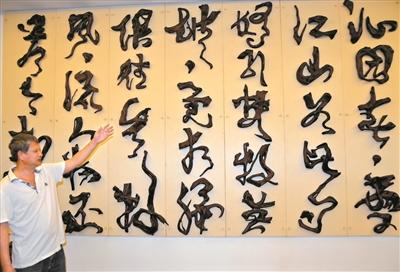 沁园春雪
江山如此多
娇引无数英
雄竞折腰
俱往矣数
风流人物还
看今朝